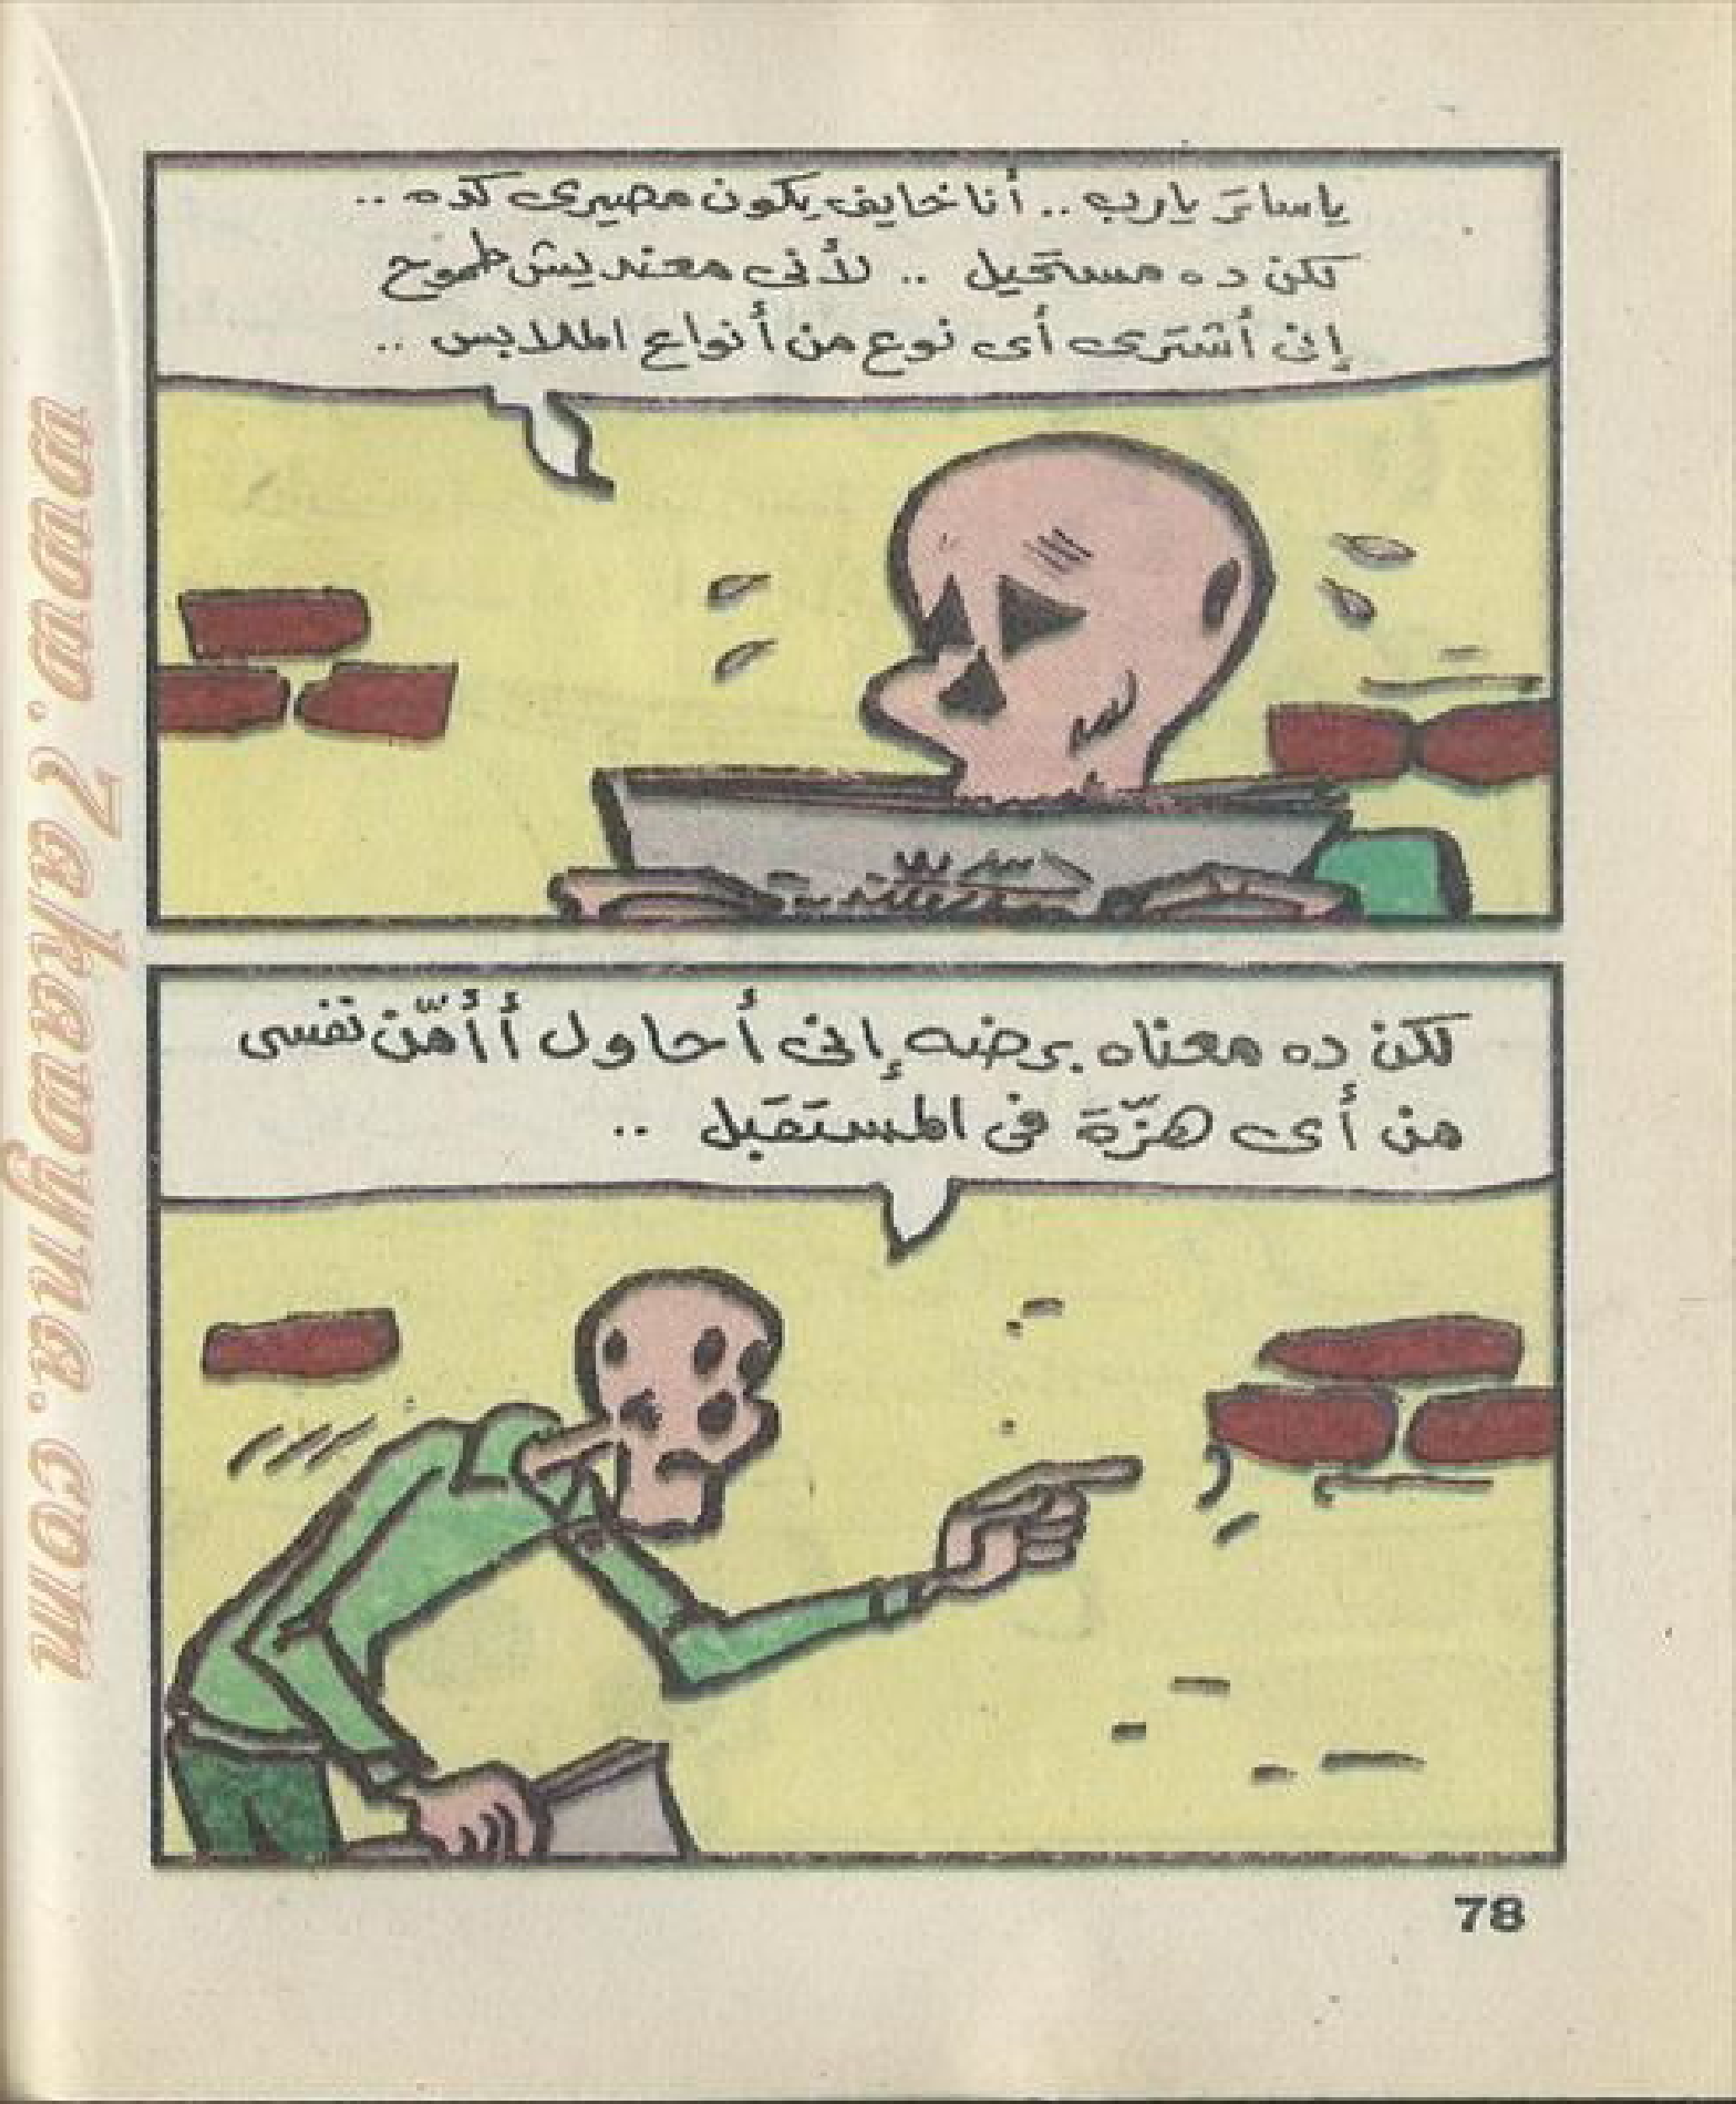 ياساتر يارب .. أنا خايف يكون مصيرى كده ..
لكن ده مستحيل .. لأنى معنديش طموح
إنى أشترى أى نوع من أنواع الملابس ..
لكن ده معناه برضه إنى أحاول أأمّن نفسى
من أى هزّة فى المستقبل ..
78
www.7akawyna.com